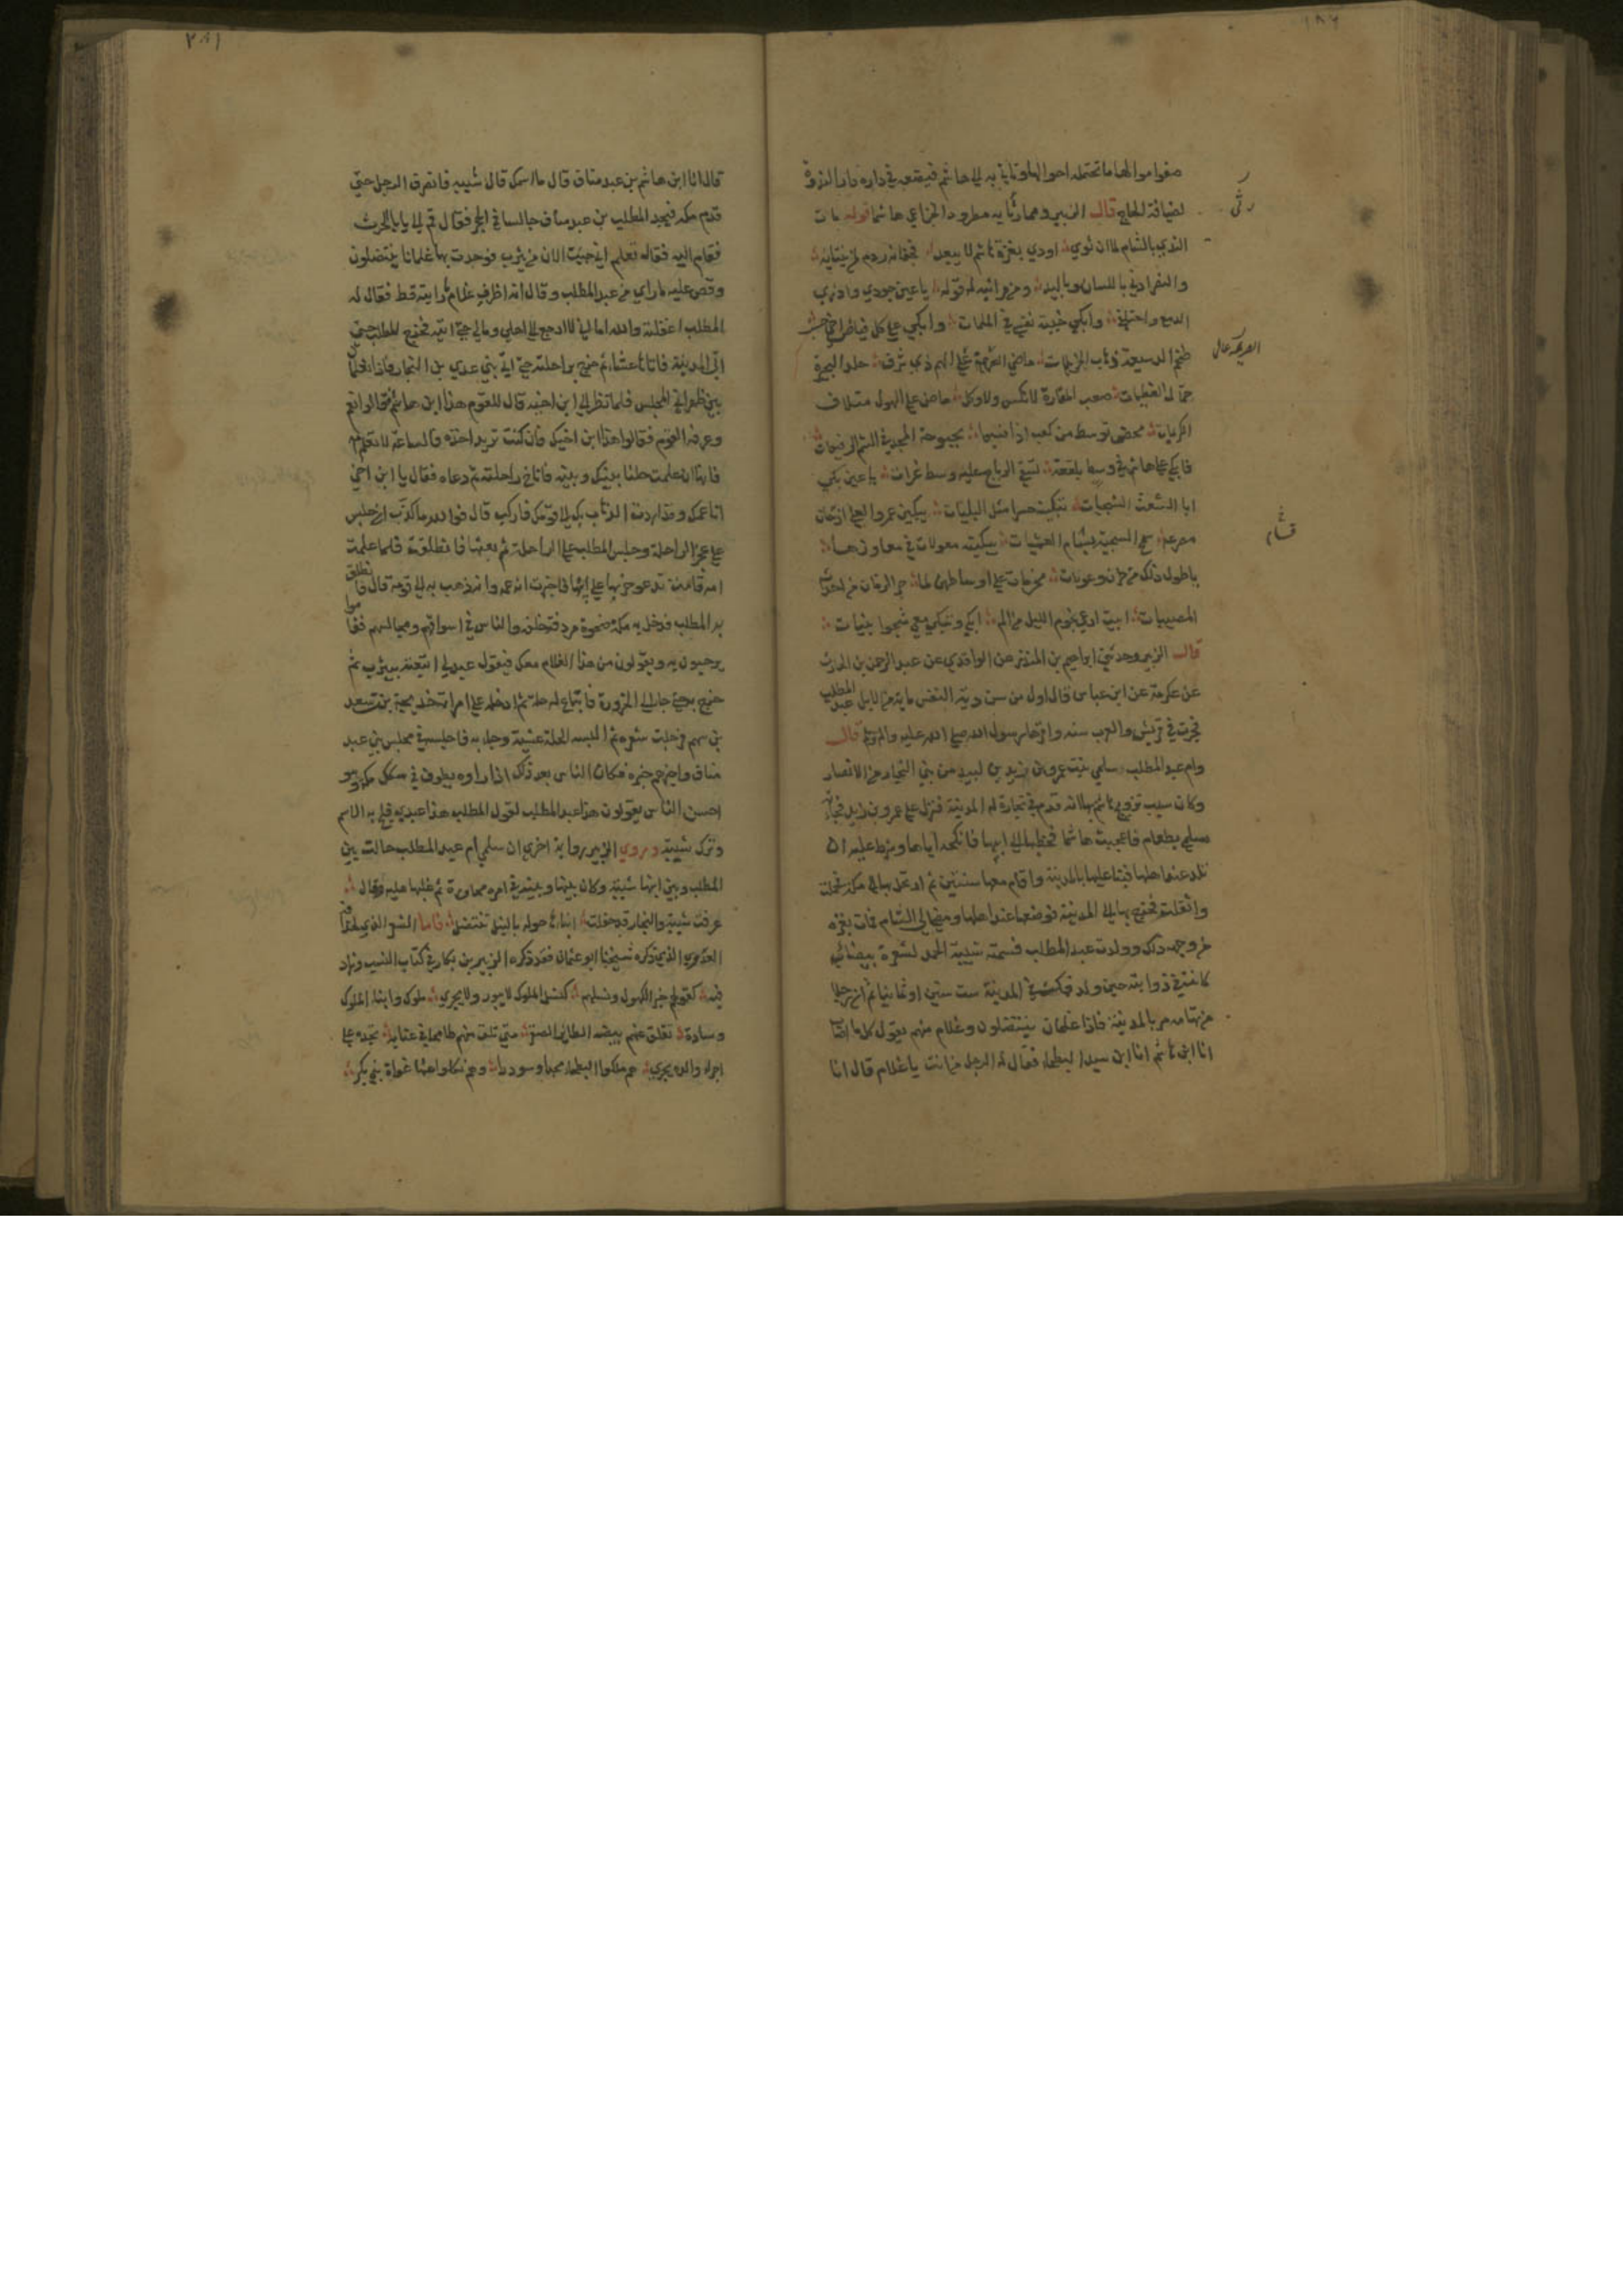 لضيافة الحاج قال الزبير ومما رثا به مطرود الخزاعي هاشما قوله مات
الندي بالشام لما ان ثوي اودي بغزة هاشم لا يبعد
والنفر ادني باللسان وباليد ومن مراثيه له قوله يا عين جودي واذري
الدمع واحتفلي وابكي خبيئة نفسي في الملمات وابكي علي كل فياض
ضخم الدسيعة وهاب الجزيلات ماضي العزيمة
صعب المقادة لا نكس ولا وكل ماض علي الهول متلاف
الكريمات محض توسط من كعب اذا نسبوا بحبوحة المجد في الشم الرفيعات
فابكي علي هاشم في وسط بلقعة تسفي الرياح عليه وسط غزات يا عين بكي
ابا الشعث الشجيات تبكينه حسرا مثل البليات يبكين عمرو العلي اذ حان
مصرعه سمح السجية بسام العشيات يبكينه معولات في معاوزها
يا طول ذلك من حزن وعولات محزمات علي اوساطهن لما جر الزمان من احداث
المصيبات ابيت ارعي نجوم الليل من الم ابكي وتبكي معي شجوا بنيات
قال الزبير وحدثني ابراهيم بن المنذر عن الواقدي عن عبد الرحمن بن الحارث
عن عكرمة عن ابن عباس قال اول من سن دية النفس ماية من الابل عبد المطلب
فجرت في قريش والعرب سنته واقرها رسول الله صلي الله عليه واله وسلم قال
وام عبد المطلب سلمي بنت عمرو بن زيد بن لبيد من بني النجار من الانصار
وكان سبب تزوج هاشم بها انه قدم في تجارة له المدينة فنزل علي عمرو بن زيد فجاءته
سلمي بطعام فاعجبت هاشما فخطبها الي ابيها فانكحه اياها وشرط عليه ان
تلد عند اهلها فبنا عليها بالمدينة واقام معها سنتين ثم ارتحل بها الي مكة فحملت
واثقلت فخرج بها الي المدينة فوضعها عند اهلها ومضي الي الشام فمات بغزه
من وجهه ذلك وولدت عبد المطلب فسمته شيبة الحمد لشعرة بيضاء
كانت في ذوابته حين ولد فمكث في المدينة ست سنين او ثمانيا ثم ان رجلا
من تهامه مر بالمدينة فاذا غلمان ينتضلون وغلام منهم يقول كلما اصاب
انا ابن هاشم انا ابن سيد البطحاء فقال له الرجل من انت يا غلام قال انا
قال انا ابن هاشم بن عبد مناف قال ما اسمك قال شيبه فانصرف الرجل حتي
قدم مكه فيجد المطلب بن عبد مناف جالسا في الحجر فقال قم الي يا ابا الحرث
فقام اليه فقال تعلم اني جيت الان من يثرب فوجدت بها غلمانا ينتضلون
وقص عليه ما راي من عبد المطلب وقال انه اظرف غلام رايته قط فقال له
المطلب اغفلته والله اما اني لا ارجع الي اهلي ومالي حتي اتيه فخرج المطلب حتي
اتي المدينة فاتاها عشاء ثم خرج براحلته حتي اتي بني عدي بن النجار فاذا الغلمان
بين ظهراني المجلس فلما نظر الي ابن اخيه قال للقوم هذا ابن هاشم قالوا نعم
وعرفه القوم فقالوا هذا ابن اخيك فان كنت تريد اخذه فالساعة لا نعلم
فانها ان علمت حلنا بينك وبينه فاناخ راحلته ثم دعاه فقال يا ابن اخي
انا عمك وقد اردت الذهاب بك الي قومك فاركب قال فوالله ما كذب ان جلس
علي عجز الراحلة وجلس المطلب علي الراحلة ثم بعثها فانطلقت فلما علمت
امه قامت تدعو حزنها علي ابنها فاخبرت انه عمه وانه ذهب به الي قومه قال فانطلق
به المطلب فدخل به مكة ضحوة مردفه خلفه والناس في اسواقهم ومجالسهم فقاموا
يرحبون به ويقولون من هذا الغلام معك فيقول عبد لي ابتعته بيثرب ثم
خرج به حتي جاء الي الحزورة فابتاع له حلة ثم ادخله علي امراته خديجة بنت سعد
بن سهم فرجلت شعره ثم البسه الحلة عشية وجاء به فاجلسه في مجلس بني عبد
مناف واخبرهم خبره فكان الناس بعد ذلك اذا راوه يطوف في سكك مكه وهو
احسن الناس يقولون هذا عبد المطلب لقول المطلب هذا عبدي فلج به الاسم
وترك شيبة وروي الزبير رواية اخري ان سلمي ام عبد المطلب حالت بين
المطلب وبين ابنها شيبة وكان بينها وبينه في امره محاورة ثم غلبها عليه وقال
عرفت شيبة والنجار قد جعلت ابناءها حوله بالنبل تنتضل فاما الشعر الذي لحذافة
العدوي الذي ذكره شيخنا ابو عثمان فقد ذكره الزبير بن بكار في كتاب النسب وزاد
فيه كهولهم خير الكهول ونسلهم كنسل الملوك لا يبور ولا يجري ملوك وابناء الملوك
وسادة تفلق عنهم بيضه الطائر الصقر متي تلق منهم طامحا في عنانه تجده علي
اجراء والده يجري هم ملكوا البطحاء مجدا وسوددا وهم نكلوا عنها غواة بني بكر